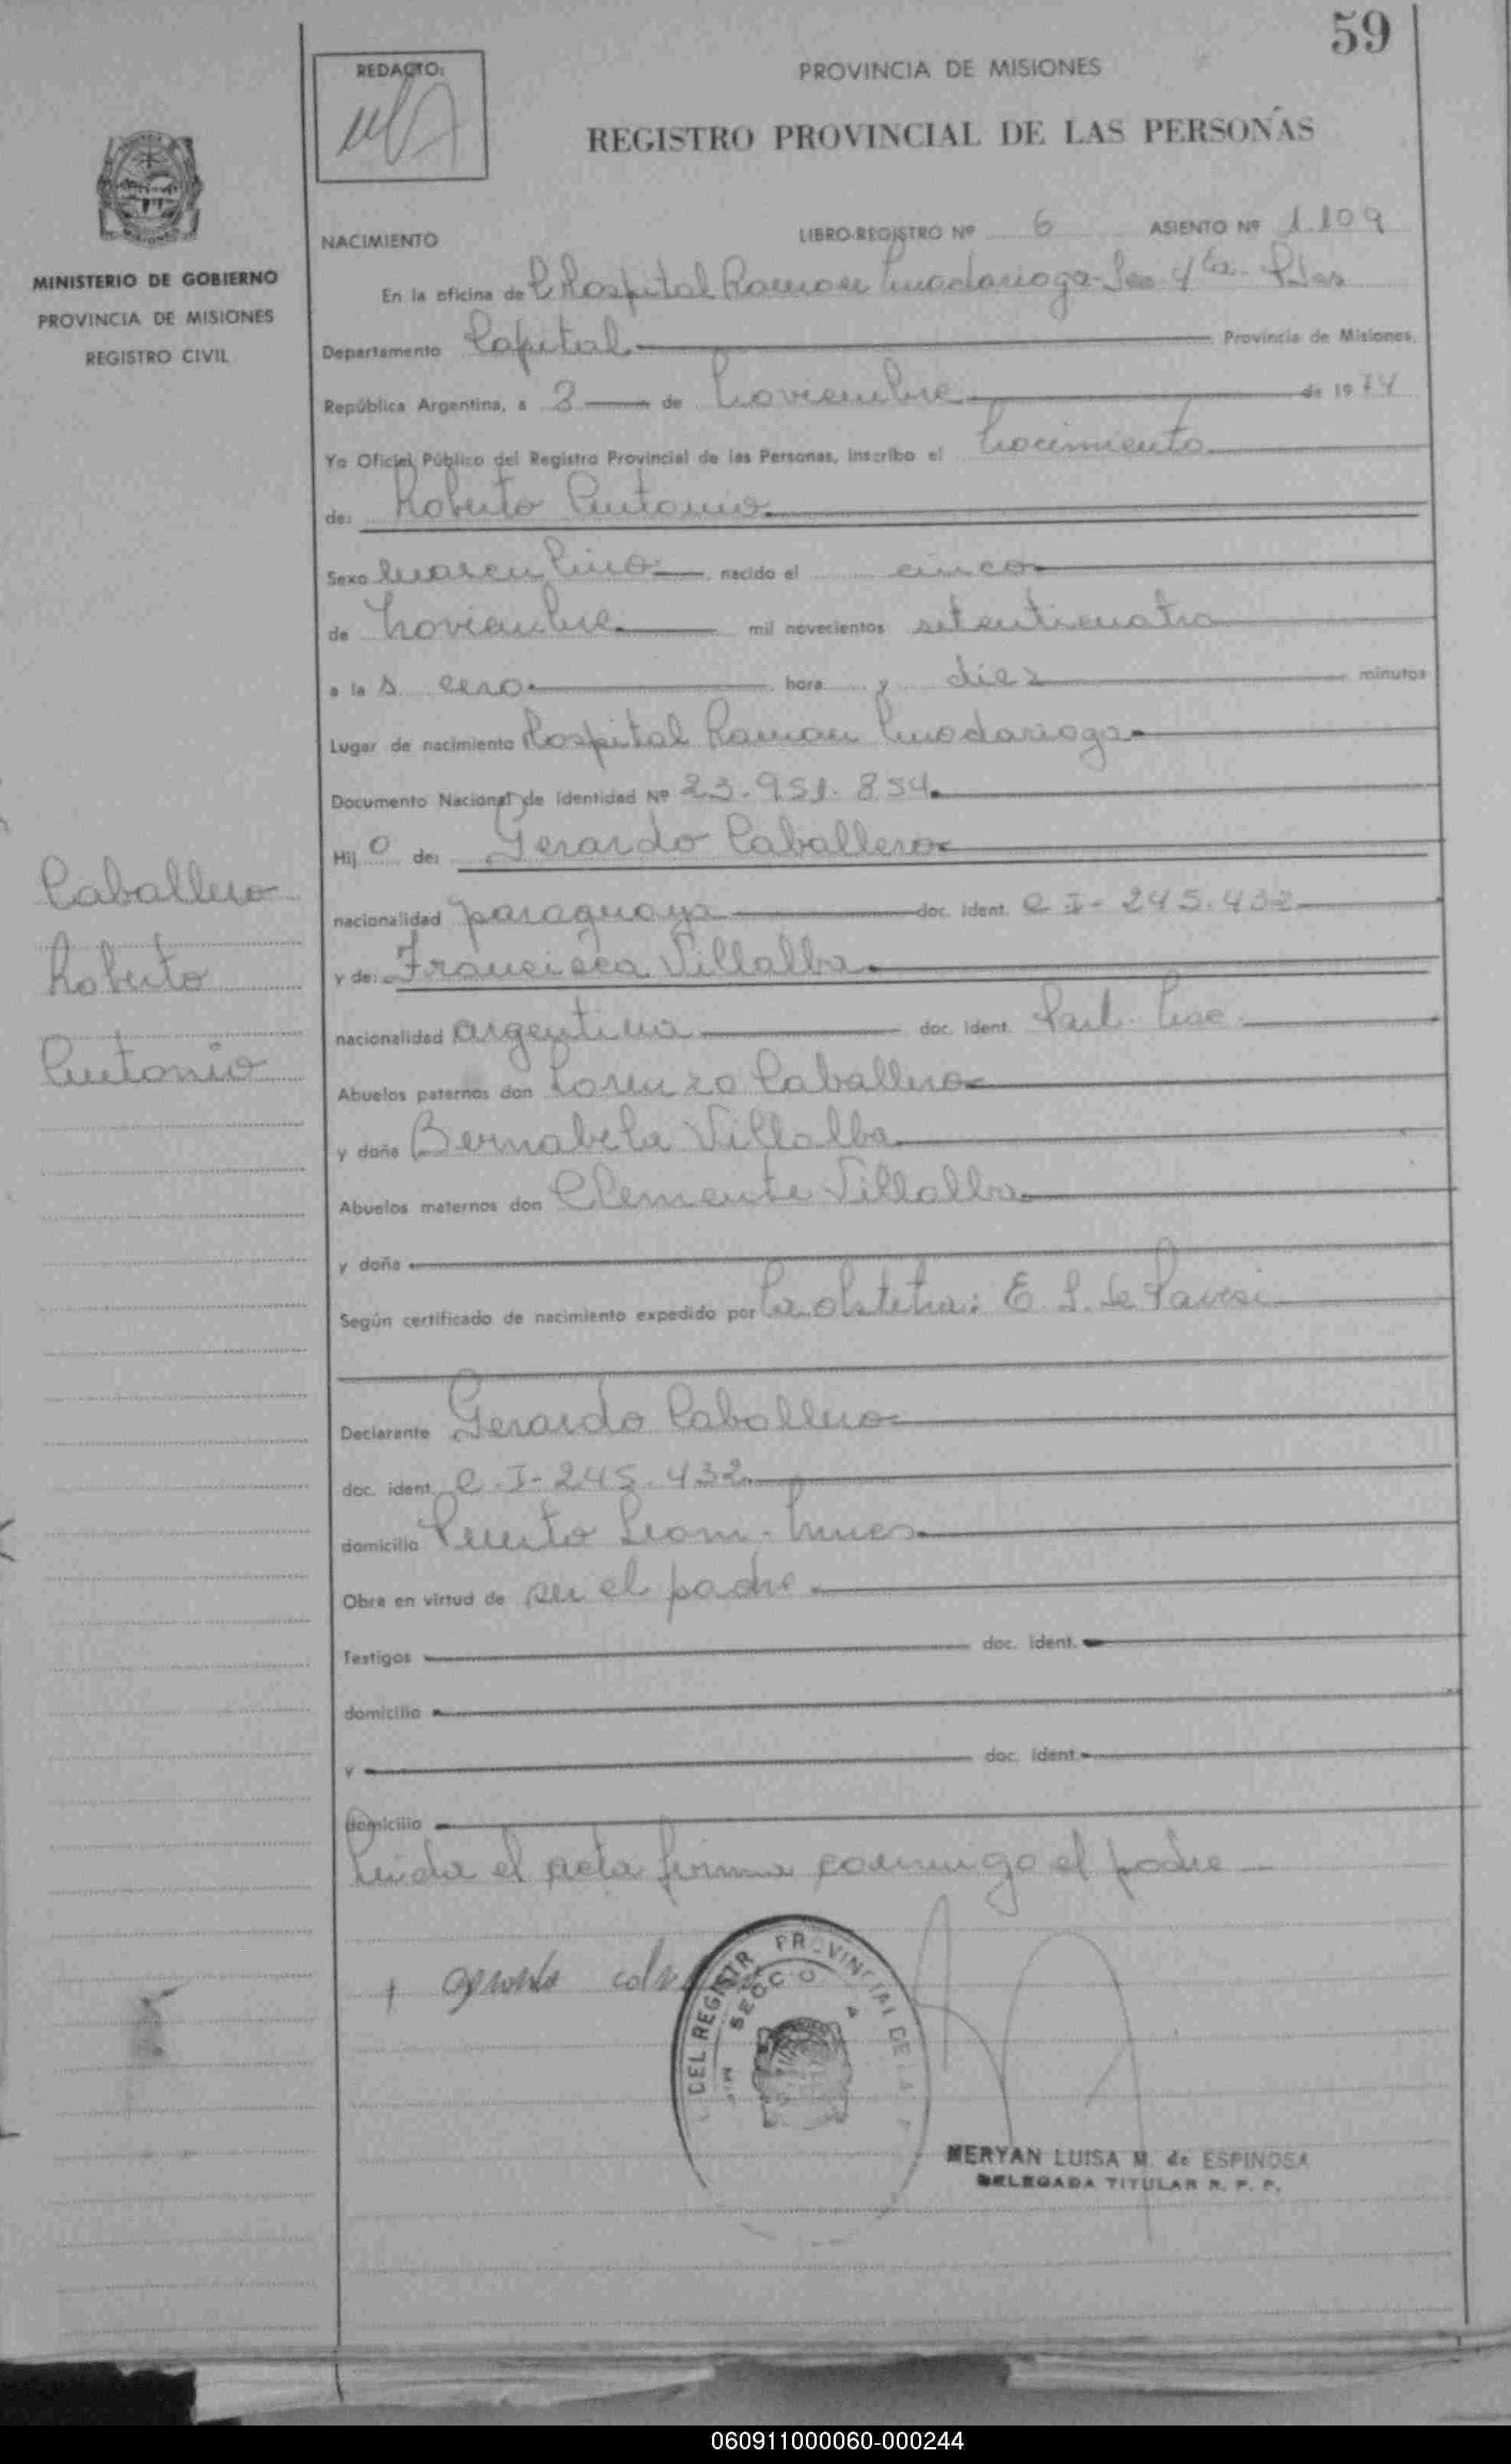 59
REDACTO:
PROVINCIA DE MISIONES
REGISTRO PROVINCIAL DE LAS PERSONAS
MINISTERIO DE GOBIERNO
PROVINCIA DE MISIONES
REGISTRO CIVIL
NACIMIENTO LIBRO-REGISTRO Nº 6 ASIENTO Nº 1.109
En la oficina de Hospital Ramon Madariaga - Sec 4ta - Pdas
Departamento Capital Provincia de Misiones,
República Argentina, a 8 de Noviembre de 1974
Yo Oficial Público del Registro Provincial de las Personas, inscribo el Nacimiento
de: Roberto Antonio
Sexo Masculino nacido el cinco
de Noviembre mil novecientos setenticuatro
a la s cero hora y diez minutos
Lugar de nacimiento Hospital Ramon Madariaga
Documento Nacional de Identidad Nº 23.951.854
Hij o de: Gerardo Caballero
nacionalidad paraguaya doc. ident. C I - 245.432
y de: Francisca Villalba
nacionalidad argentina doc. ident.
Abuelos paternos don Lorenzo Caballero
y doña Bernabela Villalba
Abuelos maternos don Clemente Villalba
y doña
Según certificado de nacimiento expedido por la obstetra: E. L. de
Declarante Gerardo Caballero
doc. ident. C. I - 245.432
domicilio Puerto Leoni - Mnes
Obra en virtud de ser el padre
Testigos doc. ident.
domicilio
y doc. ident.
domicilio
Leida el acta firma conmigo el padre
Caballero
Roberto
Antonio
DEL REGISTR PROVINCIAL DE LA
SECCIO
MERYAN LUISA M. de ESPINOSA
DELEGADA TITULAR R. P. P.
060911000060-000244